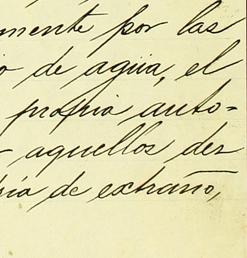 mente por las
o de agua, el
propia auto-
aquellos des
ía de extraño,